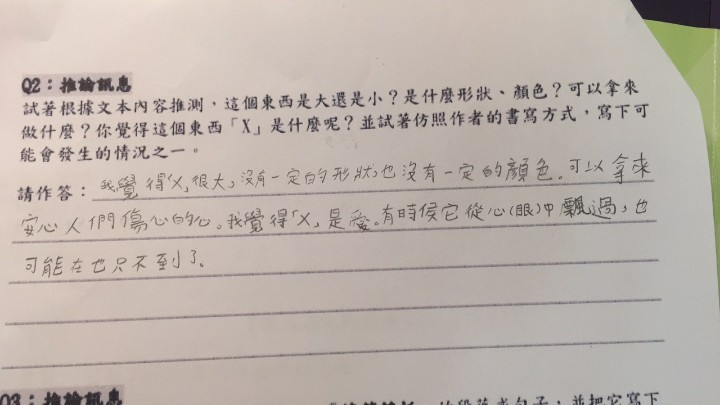 Q2：推論訊息
試著根據文本內容推測，這個東西是大還是小？是什麼形狀、顏色？可以拿來
做什麼？你覺得這個東西「X」是什麼呢？並試著仿照作者的書寫方式，寫下可
能會發生的情況之一。
請作答：我覺得「X」很大，沒有一定的形狀，也沒有一定的顏色。可以拿來
安心人們傷心的心。我覺得「X」是愛。有時侯它從心(眼)中飄過，也
可能在也只不到了。
Q3：推論訊息
的段落或句子，並把它寫下